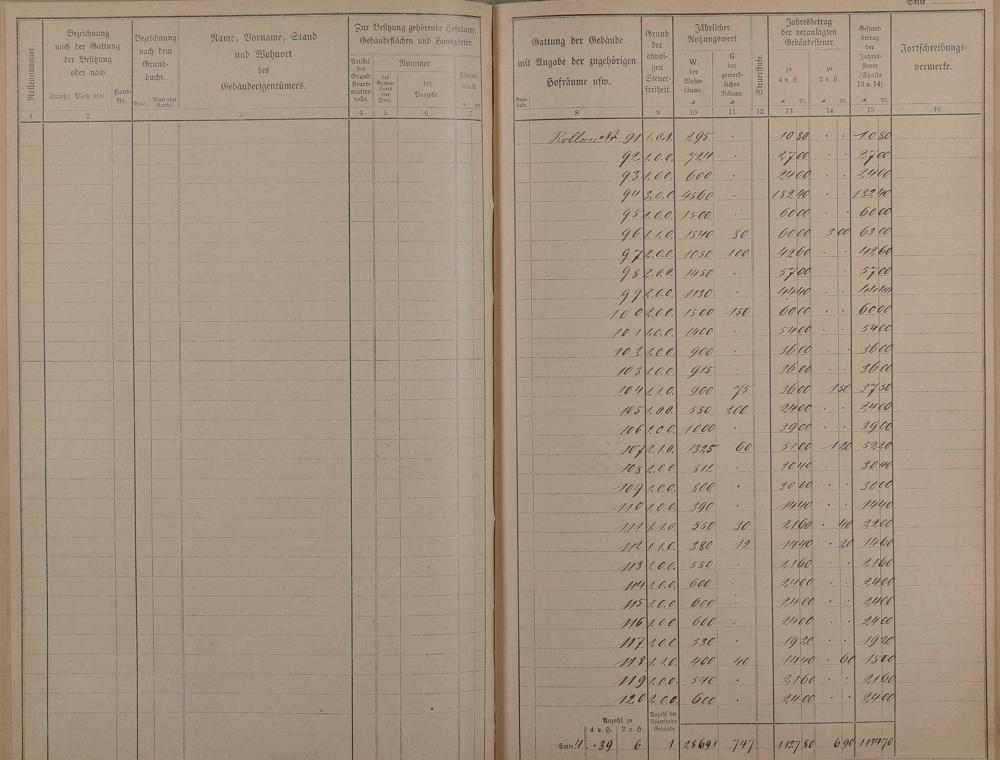 Seite
Rollennummer.
Bezeichnung
nach der Gattung
der Besitzung
oder nach
Straße, Platz usw.
Haus-
Nr.
Bezeichnung
nach dem
Grund-
buche.
Band.
Blatt oder
Artikel.
Name, Vorname, Stand
und Wohnort
des
Gebäudeeigentümers.
Zur Besitzung gehörende Hofräume,
Gebäudeflächen und Hausgärten.
Artikel
der
Grund-
steuer-
mutter-
rolle.
Nummer
der
Parzelle.
Flächen-
inhalt.
1 2 3 4 5 6 7
Gattung der Gebäude
mit Angabe der zugehörigen
Hofräume usw.
Grund
der
etwai-
gen
Steuer-
freiheit.
Jährlicher
Nutzungswert
W
der
Wohn-
räume
G
der
gewerb-
lichen
Räume
Steuerstufe.
Jahresbetrag
der veranlagten
Gebäudesteuer
zu
4 v. H.
zu
2 v. H.
Gesamt-
betrag
der
Jahres-
steuer
(Spalte
13 u. 14).
Fortschreibungs-
vermerke.
8 9 10 11 12 13 14 15 16
Rollen № 91 1.0.1. 295 · 10 80 · · 10 80
92 1.0.0. 724 · 27 00 · · 27 00
93 1.0.0. 600 · 24 00 · · 24 00
94 3.0.0. 4560 · 182 40 · · 182 40
95 1.0.0. 1500 · 60 00 · · 60 00
96 1.1.0. 1540 80 60 00 3 00 63 00
97 2.0.0. 1050 100 42 60 · · 42 60
98 2.0.0. 1450 · 57 00 · · 57 00
99 2.0.0. 1130 · 44 40 · · 44 40
100 2.0.0. 1500 150 60 00 · · 60 00
101 1.0.0. 1400 · 54 00 · · 54 00
102 1.0.0. 900 · 36 00 · · 36 00
103 1.0.0. 915 · 36 00 · · 36 00
104 1.1.0. 900 75 36 00 1 50 37 50
105 1.0.0. 550 200 24 00 · · 24 00
106 1.0.0. 1000 · 39 00 · · 39 00
107 2.1.0. 1325 60 51 00 1 20 52 20
108 2.0.0. 812 · 30 40 · · 30 40
109 1.0.0. 800 · 30 00 · · 30 00
110 1.0.0. 390 · 14 40 · · 14 40
111 1.1.0. 550 30 21 60 · 40 22 00
112 1.1.0. 380 12 14 40 · 20 14 60
113 1.0.0. 550 · 21 60 · · 21 60
114 1.0.0. 600 · 24 00 · · 24 00
115 1.0.0. 600 · 24 00 · · 24 00
116 1.0.0. 600 · 24 00 · · 24 00
117 1.0.0. 530 · 19 20 · · 19 20
118 1.1.0. 400 40 14 40 · 60 15 00
119 1.0.0. 540 · 21 60 · · 21 60
120 2.0.0. 600 · 24 00 · · 24 00
Anzahl zu
4 v. H. 2 v. H.
Anzahl der
steuerfreien
Gebäude
Seite 4. 39 6 1 28691 747 1127 80 6 90 1134 70